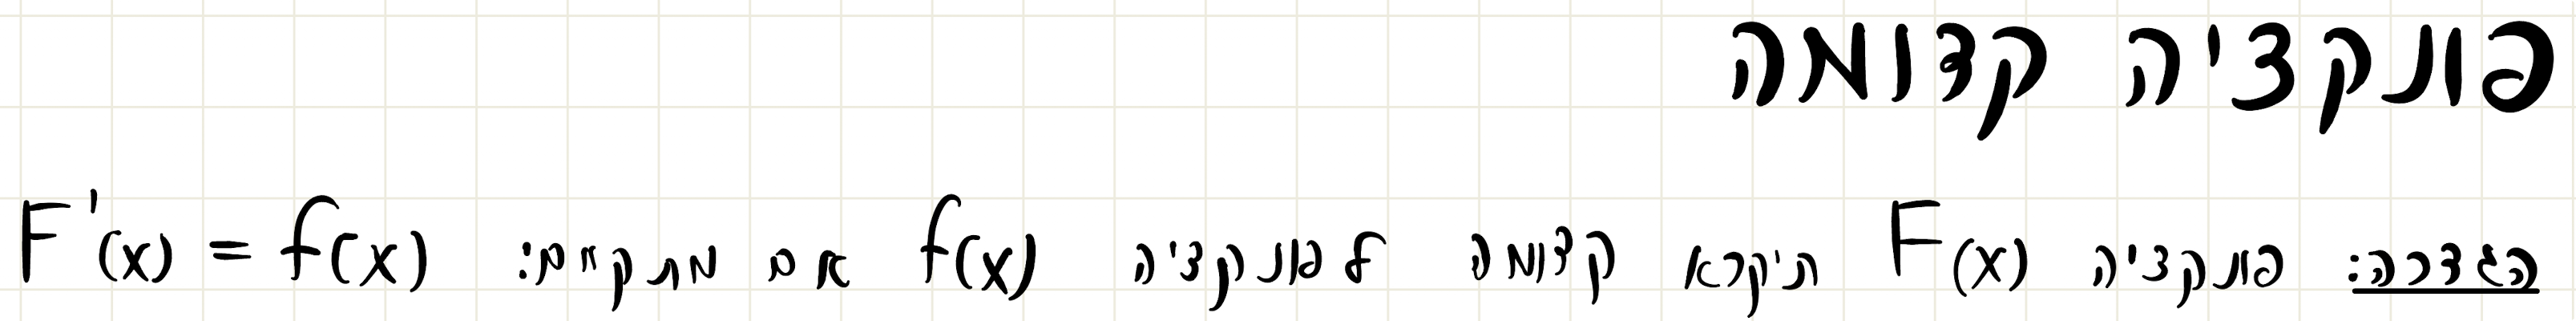 פונקציה קדומה
הגדרה: פונקציה F(x) תיקרא קדומה לפונקציה f(x) אם מתקיים: F'(x) = f(x)